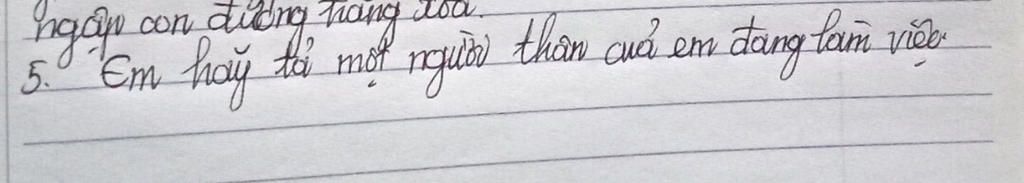 ngập con đường tráng xoá.
5. Em hãy tả một người thân của em đang làm việc.